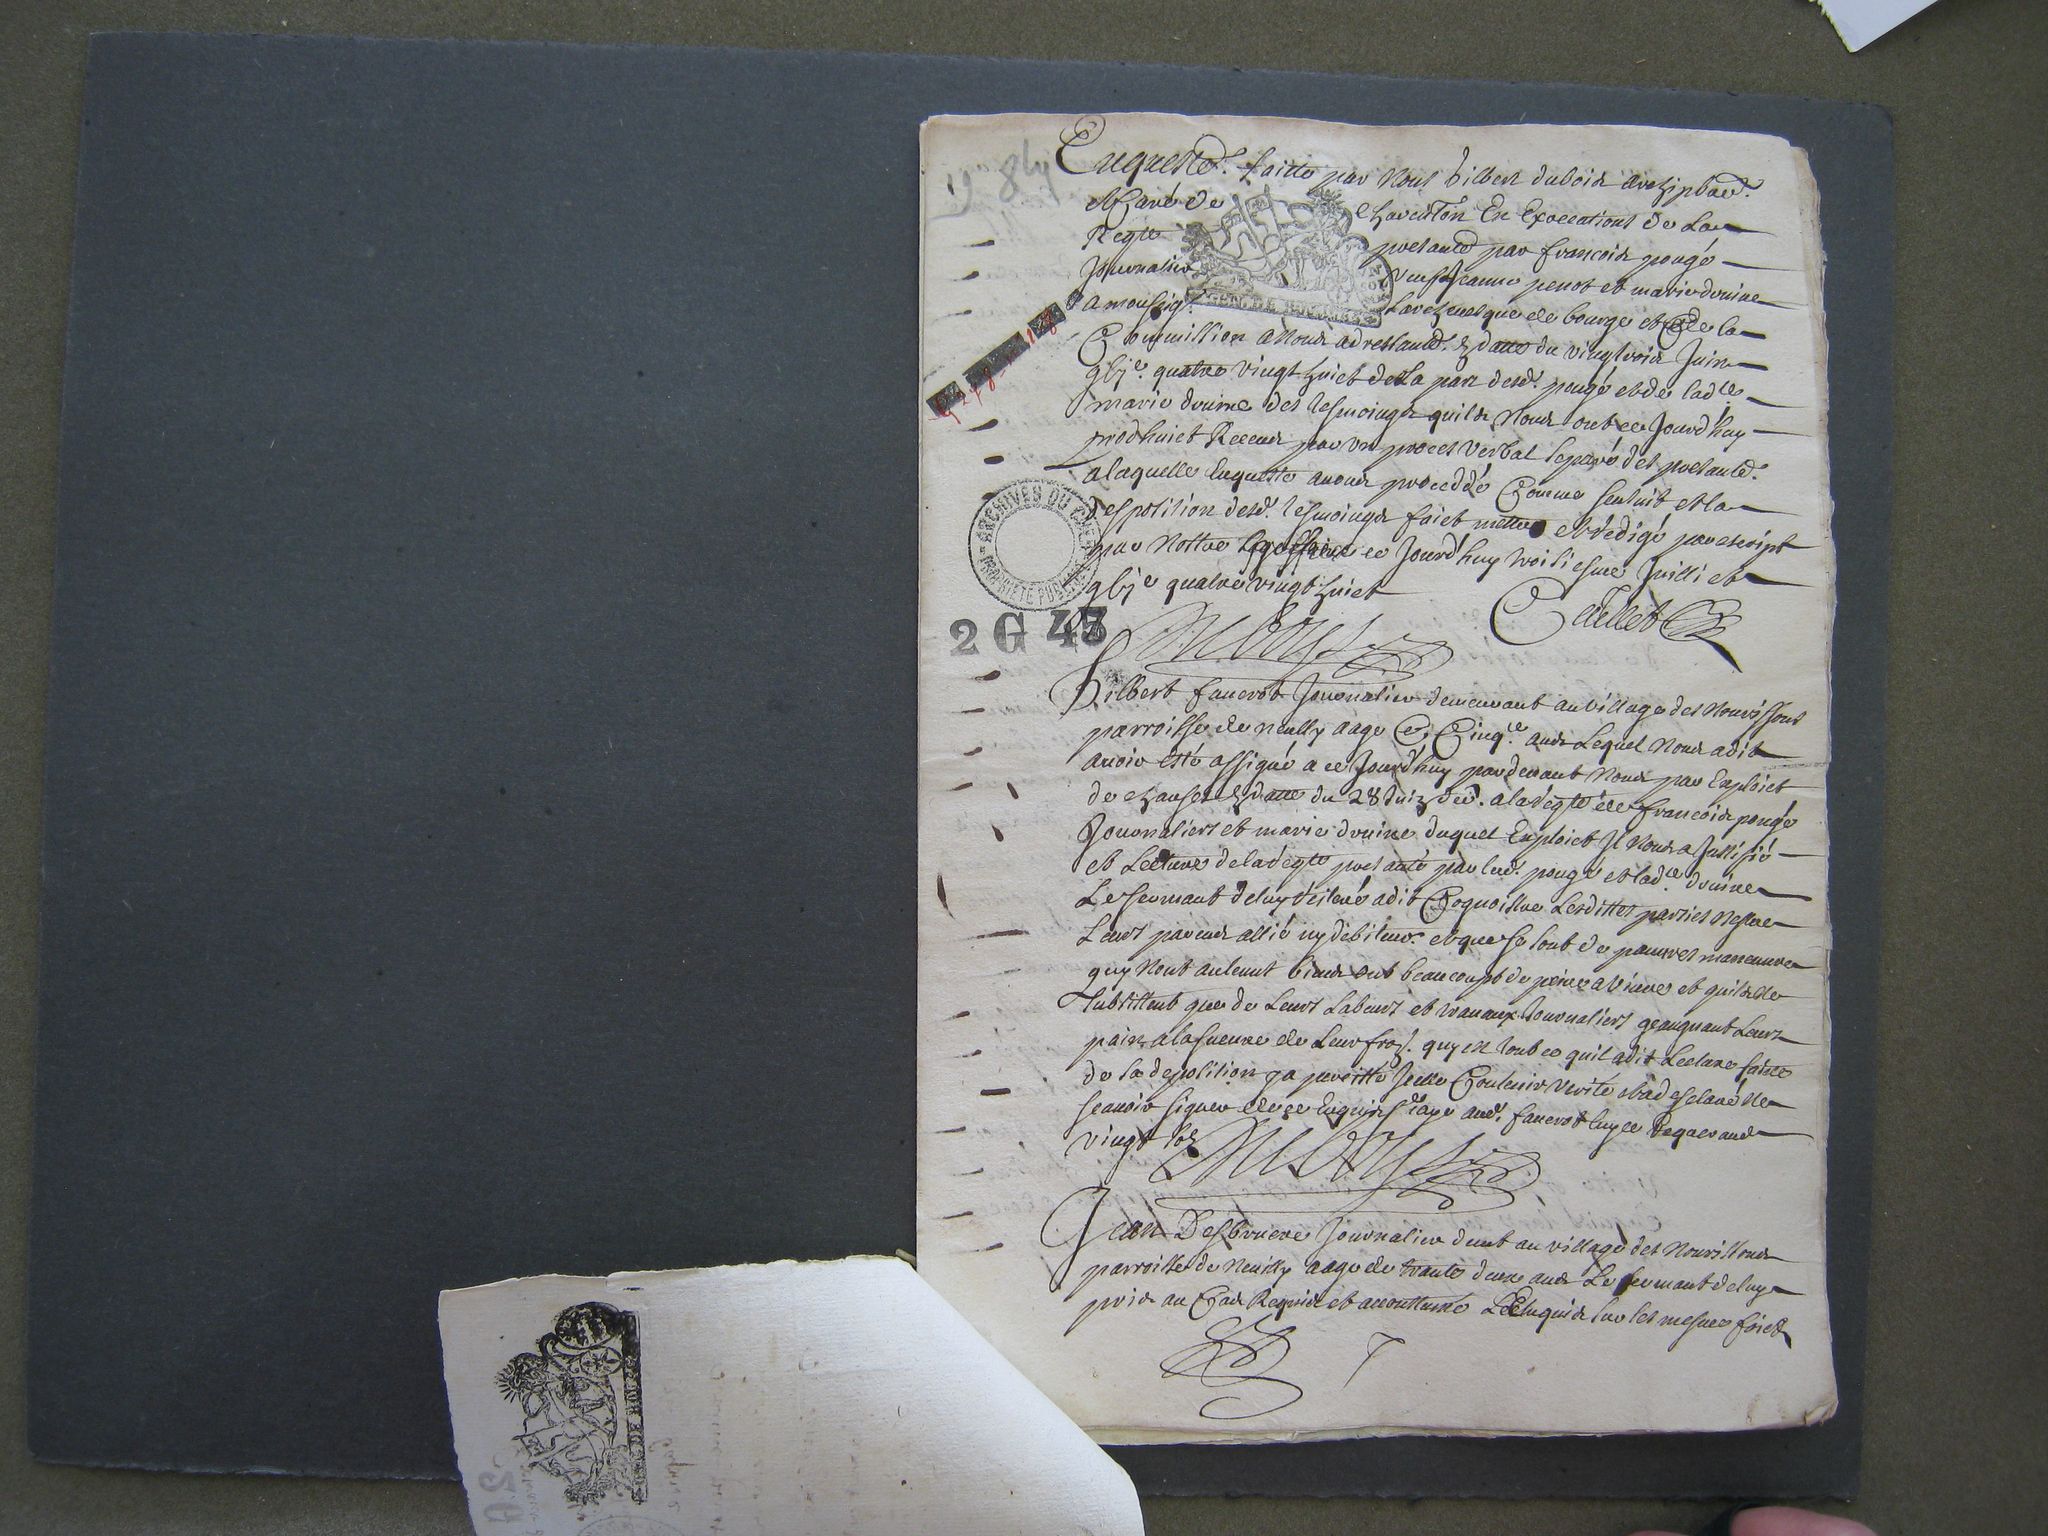 Enqueste faitte par Nous Gilbert dubois archiptre
et Curé de Charenton En Execcations de La
Reqte presanté par francois pougé
Journalier Jeanne penot et marie drüine
a monseigr. Larchevesque de bourge et de la
Commission a Nous adressante & datte du vingtrois Juin
gbjc. quatre vingt huict de la part desd. pougé et de ladte
marie druine des tesmoings quils Nous ont ce Jourd'huy
prodhuict Receus par un proces verbal separé des presante
a laquelle Enqueste avons proceddé Comme sensuit et la
desposition desd. tesmoings faict mettre et rédigé par escript
par Nottre greffier ce Jourd'huy troisiesme Juilliet
gbjc quatre vingt huict
Caillet
Dubois
Gilbert faucrot Journalier demeurant au village des Nourissons
parroisse de neuilly aage de Cinqte ans Lequel Nous a dit
avoir esté assigné a ce Jourd'huy pardevant Nous par Exploict
de datte du 28 Juin der. a la reqte de francois pougé
Journaliers et marie druine duquel Exploict Il Nous a Justifié
et Lecture de la reqte presanté par led. pougé et lad.te druine
Le sermant de luy a dit Cognoistre Lesdittes parties Nestre
Leurs parens allié ny debiteur et que se sont de pauvres maneuvre
quy Nont aulcunt biens ont beaucoupt de peine a vivre et quils Ne
subsistent que de Leurs Labeurs et travaux Journaliers geaugnant Leurs
pain a la sueure de Leur quy est tout ce quil a dit Lecture faitte
de sa deposition ya persisté Jcelle Contenir verité et a desclaré Ne
scavoir signer de ce Enquis taxe aud. faucrot luy ce Requerand
vingt sols
Dubois
Jean Desbruere Journalier demt au village des Nourissons
parroisse de Neuilly aage de trante deux ans Le sermant de luy
pris au Cas Requis et accouttumé sur les mesmes faicts
2 G 43
ARCHIVES DU CHER
PROPRIÉTÉ PUBLIQUE
GEN. DE BOURGES